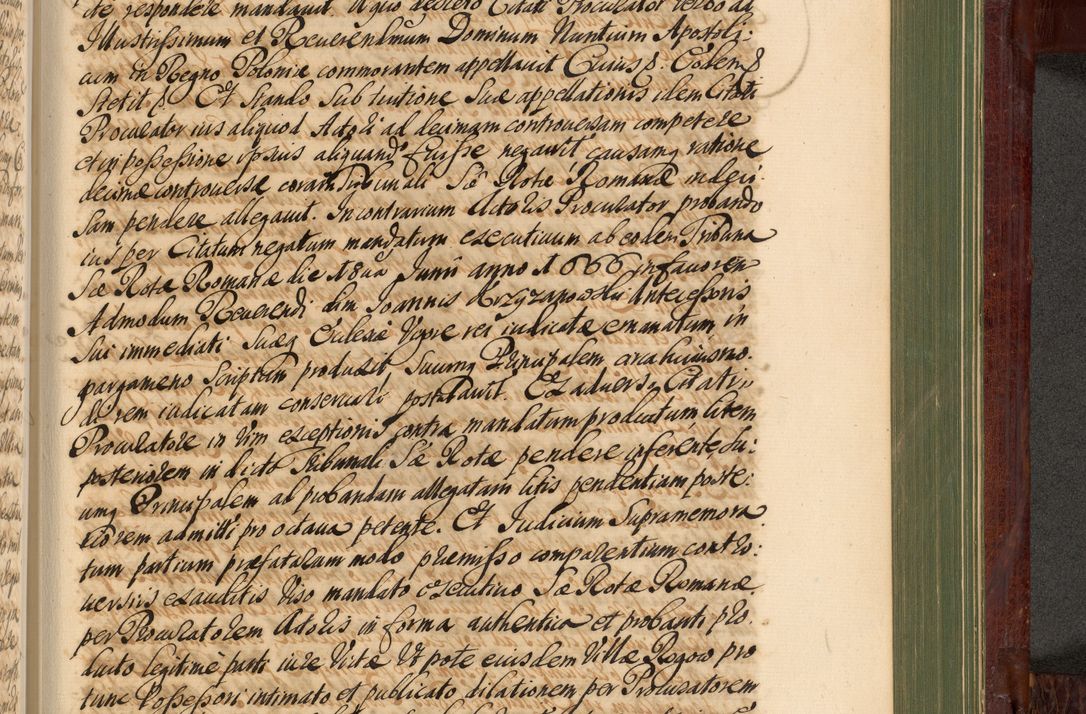 cte respondere mandavit. A quo decreto Citati Procurator verbo ad
Illustrissimum et Reverendmum Dominum Nuntium Apostoli:
cum in Regno Poloniæ commorantem appellavit Cuius p. Eodem
stetit p. Et stando sub tuitione suæ appellationis idem Citati
Procurator ius aliquod Actori ad decimam controversam competere
et in possessione ipsius aliquando fuisse negavit causamq ratione
decimæ controversæ coram Tribunali Sæ Rotæ Romanæ indeci
sam pendere allegavit. In contrarium Actoris Procurator probando
ius per Citatum negatum mandatum executivum ab eodem Tribuna
Sæ Rotæ Romanæ die 18va Junii anno 1666 in favorem
Admodum Reverendi dim Joannis Krzyzanowski Antecessoris
sui immediati suæq Ecclesiæ vigore rei iudicatæ emanatum in
pargameno scriptum produxit suumq Principalem circa huiusmo
di rem iudicatam conservari postulavit. Ex adverso Citati
Procuratore in vim exceptionis contra mandatum productum litem
posteriorem in dicto Tribunali Sæ Rotæ pendere inferente, su:
umq Principalem ad probandam allegatam litis pendentiam poste:
riorem admitti pro octava petente. Et Judicium supramemora
tum partium præfatarum modo præmisso comparentium contro:
versiis exauditis viso mandato executivo Sæ Rotæ Romanæ
per Procuratorem Actoris in forma authentica et probanti pro
ducto legitime parti iure victæ ut pote eiusdem Villæ Rogow pro
tunc Possessori intimato et publicato dilationem per Procuratorem